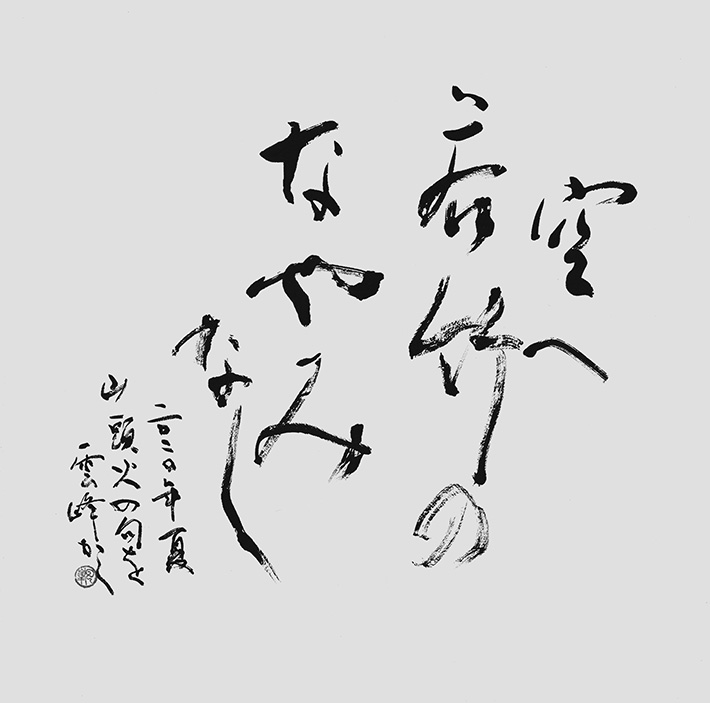 空へ
若竹の
なやみ
なし
二〇二〇年夏
山頭火の句を
雲峰かく